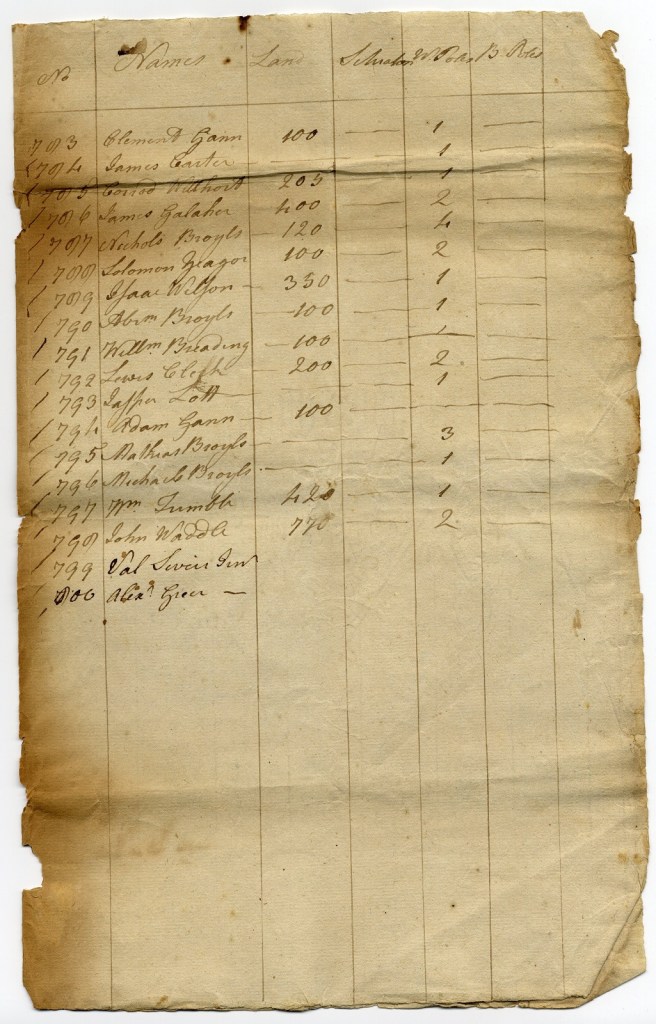 No Names Land Situation W Polls B Poles
783 Clement Gann 100 — 1 —
784 James Carter — — 1 —
785 Conrod Willhoit 205 — 1 —
786 James Galaher 400 — 2 —
787 Nichols Broyls 120 — 4 —
788 Solomon Yeager 100 — 2 —
789 Isaac Wilson — 350 — 1 —
790 Abrm Broyls 100 — 1 —
791 Willm Breading 100 — 1 —
792 Lewis Click — 200 — 2 —
793 Jasper Lott — — — 1 —
794 Adam Gann — 100 — —
795 Mathias Broyls — — 3 —
796 Michael Broyls — — 1 —
797 Wm Trimble 420 — 1 —
798 John Waddle 770 — 2 —
799 Val Sevier Junr
800 Alexr Greer —